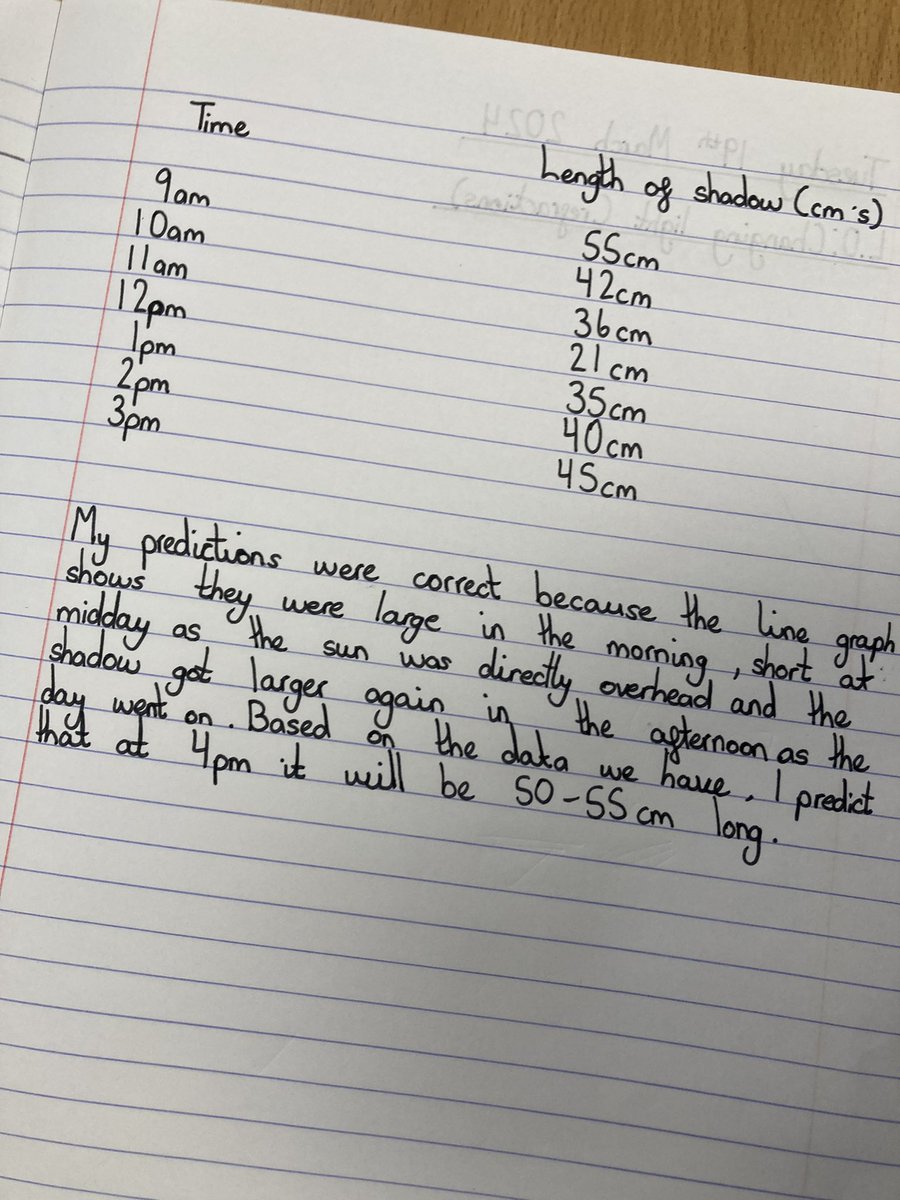 Tuesday 19th March 2024
L.O: Changing light
Time Length of shadow (cm's)
9am 55cm
10am 42cm
11am 36cm
12pm 21cm
1pm 35cm
2pm 40cm
3pm 45cm
My predictions were correct because the line graph
shows they were large in the morning, short at
midday as the sun was directly overhead and the
shadow got larger again in the afternoon as the
day went on. Based on the data we have, I predict
that at 4pm it will be 50-55cm long.